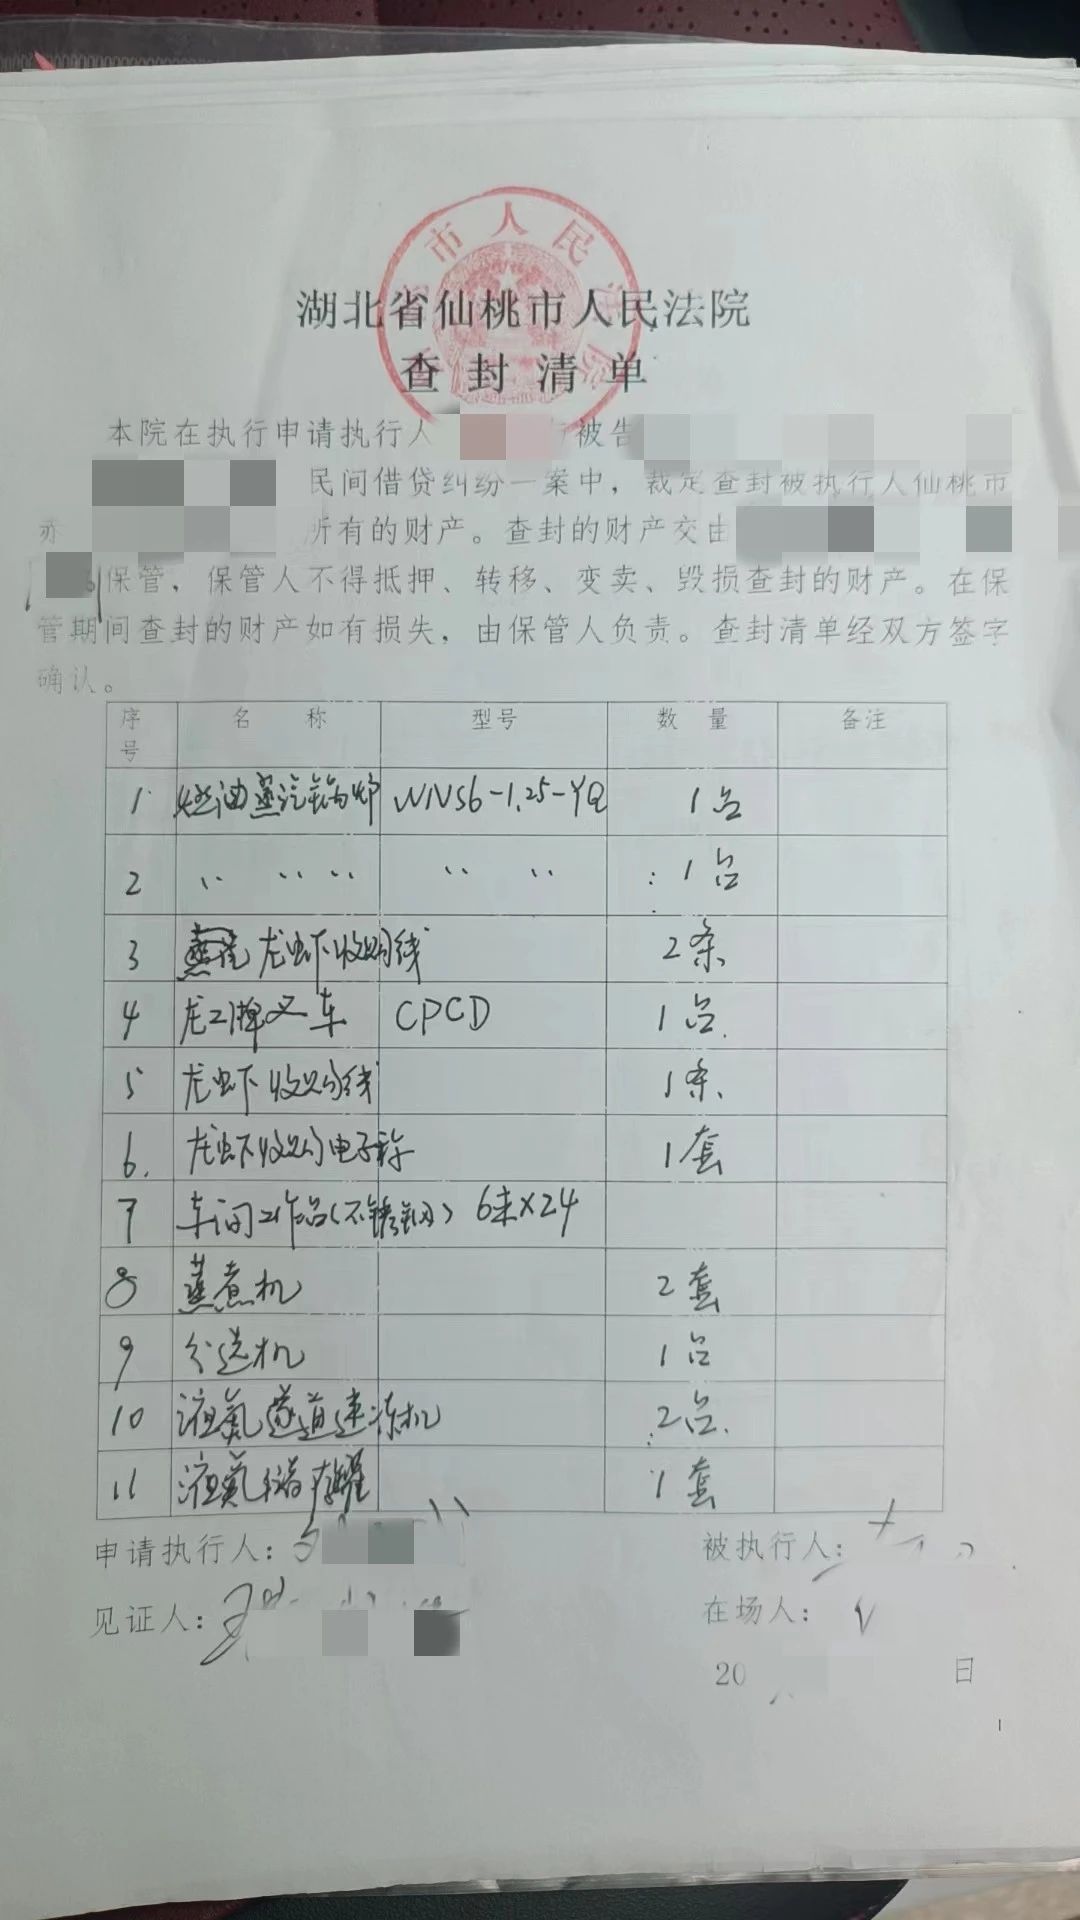 市人民
湖北省仙桃市人民法院
查封清单
本院在执行申请执行人 被告
民间借贷纠纷一案中，裁定查封被执行人仙桃市
所有的财产。查封的财产交由
保管，保管人不得抵押、转移、变卖、毁损查封的财产。在保
管期间查封的财产如有损失，由保管人负责。查封清单经双方签字
确认。
序号 名称 型号 数量 备注
1 燃油蒸汽锅炉 WNS6-1.25-YQ 1台
2 〃 〃 〃 〃 〃 1台
3 龙虾收购线 2条
4 龙工牌叉车 CPCD 1台
5 龙虾收购线 1条
6. 龙虾收购电子称 1套
7 车间工作台(不锈钢) 6米×24
8 蒸煮机 2套
9 分选机 1台
10 液氮遂道速冻机 2台
11 液氮储存罐 1套
申请执行人： 被执行人：
见证人： 在场人：
20 日
1